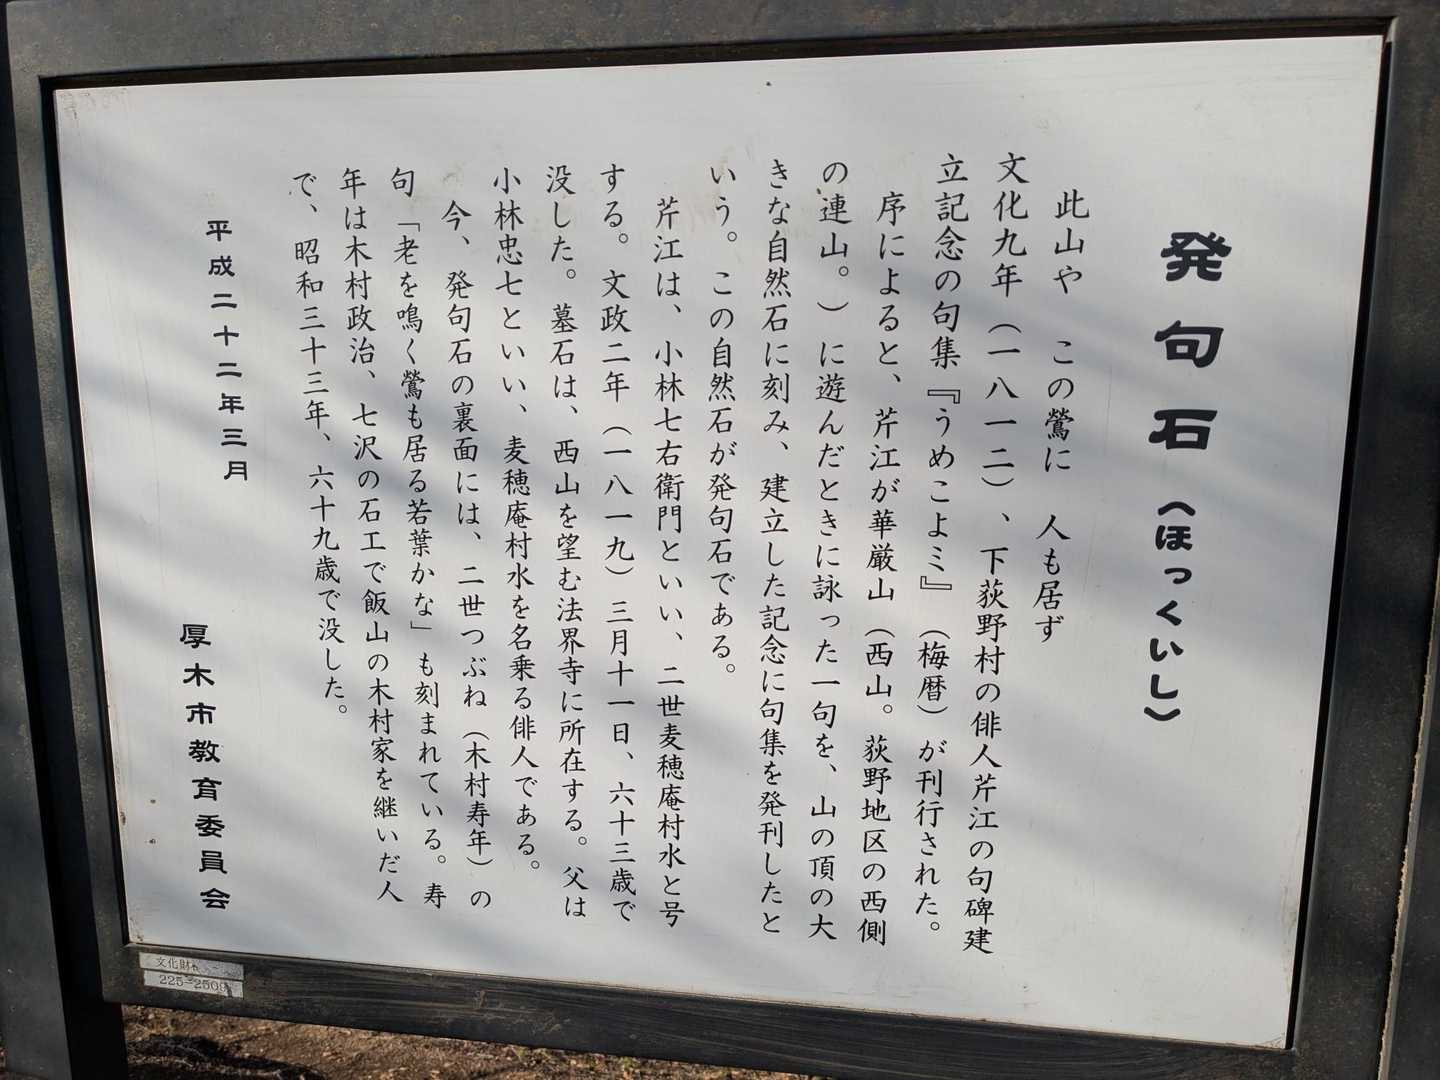 発句石(ほっくいし)
此山や この鶯に 人も居ず
文化九年(一八一二)、下荻野村の俳人芹江の句碑建
立記念の句集『うめこよミ』(梅暦)が刊行された。
序によると、芹江が華厳山(西山。荻野地区の西側
の連山。)に遊んだときに詠った一句を、山の頂の大
きな自然石に刻み、建立した記念に句集を発刊したと
いう。この自然石が発句石である。
芹江は、小林七右衛門といい、二世麦穂庵村水と号
する。文政二年(一八一九)三月十一日、六十三歳で
没した。墓石は、西山を望む法界寺に所在する。父は
小林忠七といい、麦穂庵村水を名乗る俳人である。
今、発句石の裏面には、二世つぶね(木村寿年)の
句「老を鳴く鶯も居る若葉かな」も刻まれている。寿
年は木村政治、七沢の石工で飯山の木村家を継いだ人
で、昭和三十三年、六十九歳で没した。
平成二十二年三月
厚木市教育委員会
文化財
225-2509